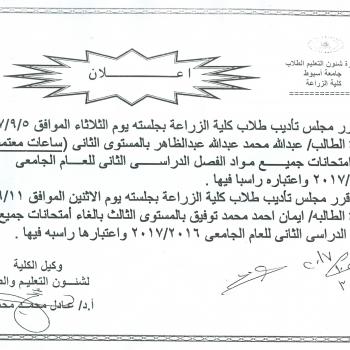 رة شئون التعليم الطلاب
جامعة أسيوط
كلية الزراعة
اعـــــلان
رر مجلس تأديب طلاب كلية الزراعة بجلسته يوم الثلاثاء الموافق ٧/٩/٥
الطالب/ عبدالله محمد عبدالله عبدالظاهر بالمستوى الثانى (ساعات معتم
امتحانات جميـــع مـواد الفصل الدراســـى الثانى للعــام الجامعى
/٢٠١٧ واعتباره راسبا فيها .
قرر مجلس تأديب طلاب كلية الزراعة بجلسته يوم الاثنين الموافق ٩/١١
الطالبه/ ايمان احمد محمد توفيق بالمستوى الثالث بالغاء أمتحانات جميع
الدراسى الثانى للعام الجامعى ٢٠١٧/٢٠١٦ واعتبارها راسبه فيها .
وكيل الكلية
لشئـون التعليم والط
أ.د/ عـادل محمـد محم